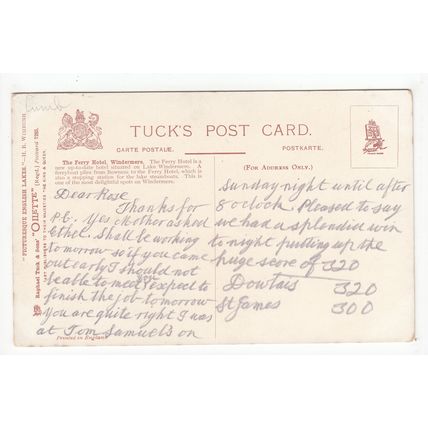 Cumb
TUCK'S POST CARD.
CARTE POSTALE. POSTKARTE.
"PICTURESQUE ENGLISH LAKES."
Raphael Tuck & Sons' "OILETTE" (Regd.) Postcard 7285.
ART PUBLISHERS TO THEIR MAJESTIES THE KING & QUEEN.
The Ferry Hotel, Windermere. The Ferry Hotel is a
new up-to-date hotel situated on Lake Windermere. A
ferryboat plies from Bowness to the Ferry Hotel, which is
also a stopping station for the lake steamboats. This is
one of the most delightful spots on Windermere.
Dear Rose
Thanks for
p.c. Yes Mother asked
Ethel. Shall be working
tomorrow so if you came
out early I should not
be able to meet you expect to
finish the job tomorrow
You are quite right I was
at Tom Samuel's on
Printed in England
(FOR ADDRESS ONLY.)
Sunday night until after
8 o'clock. Pleased to say
we had a splendid win
to night putting up the
huge score of 320
Dowlais 320
St James 300